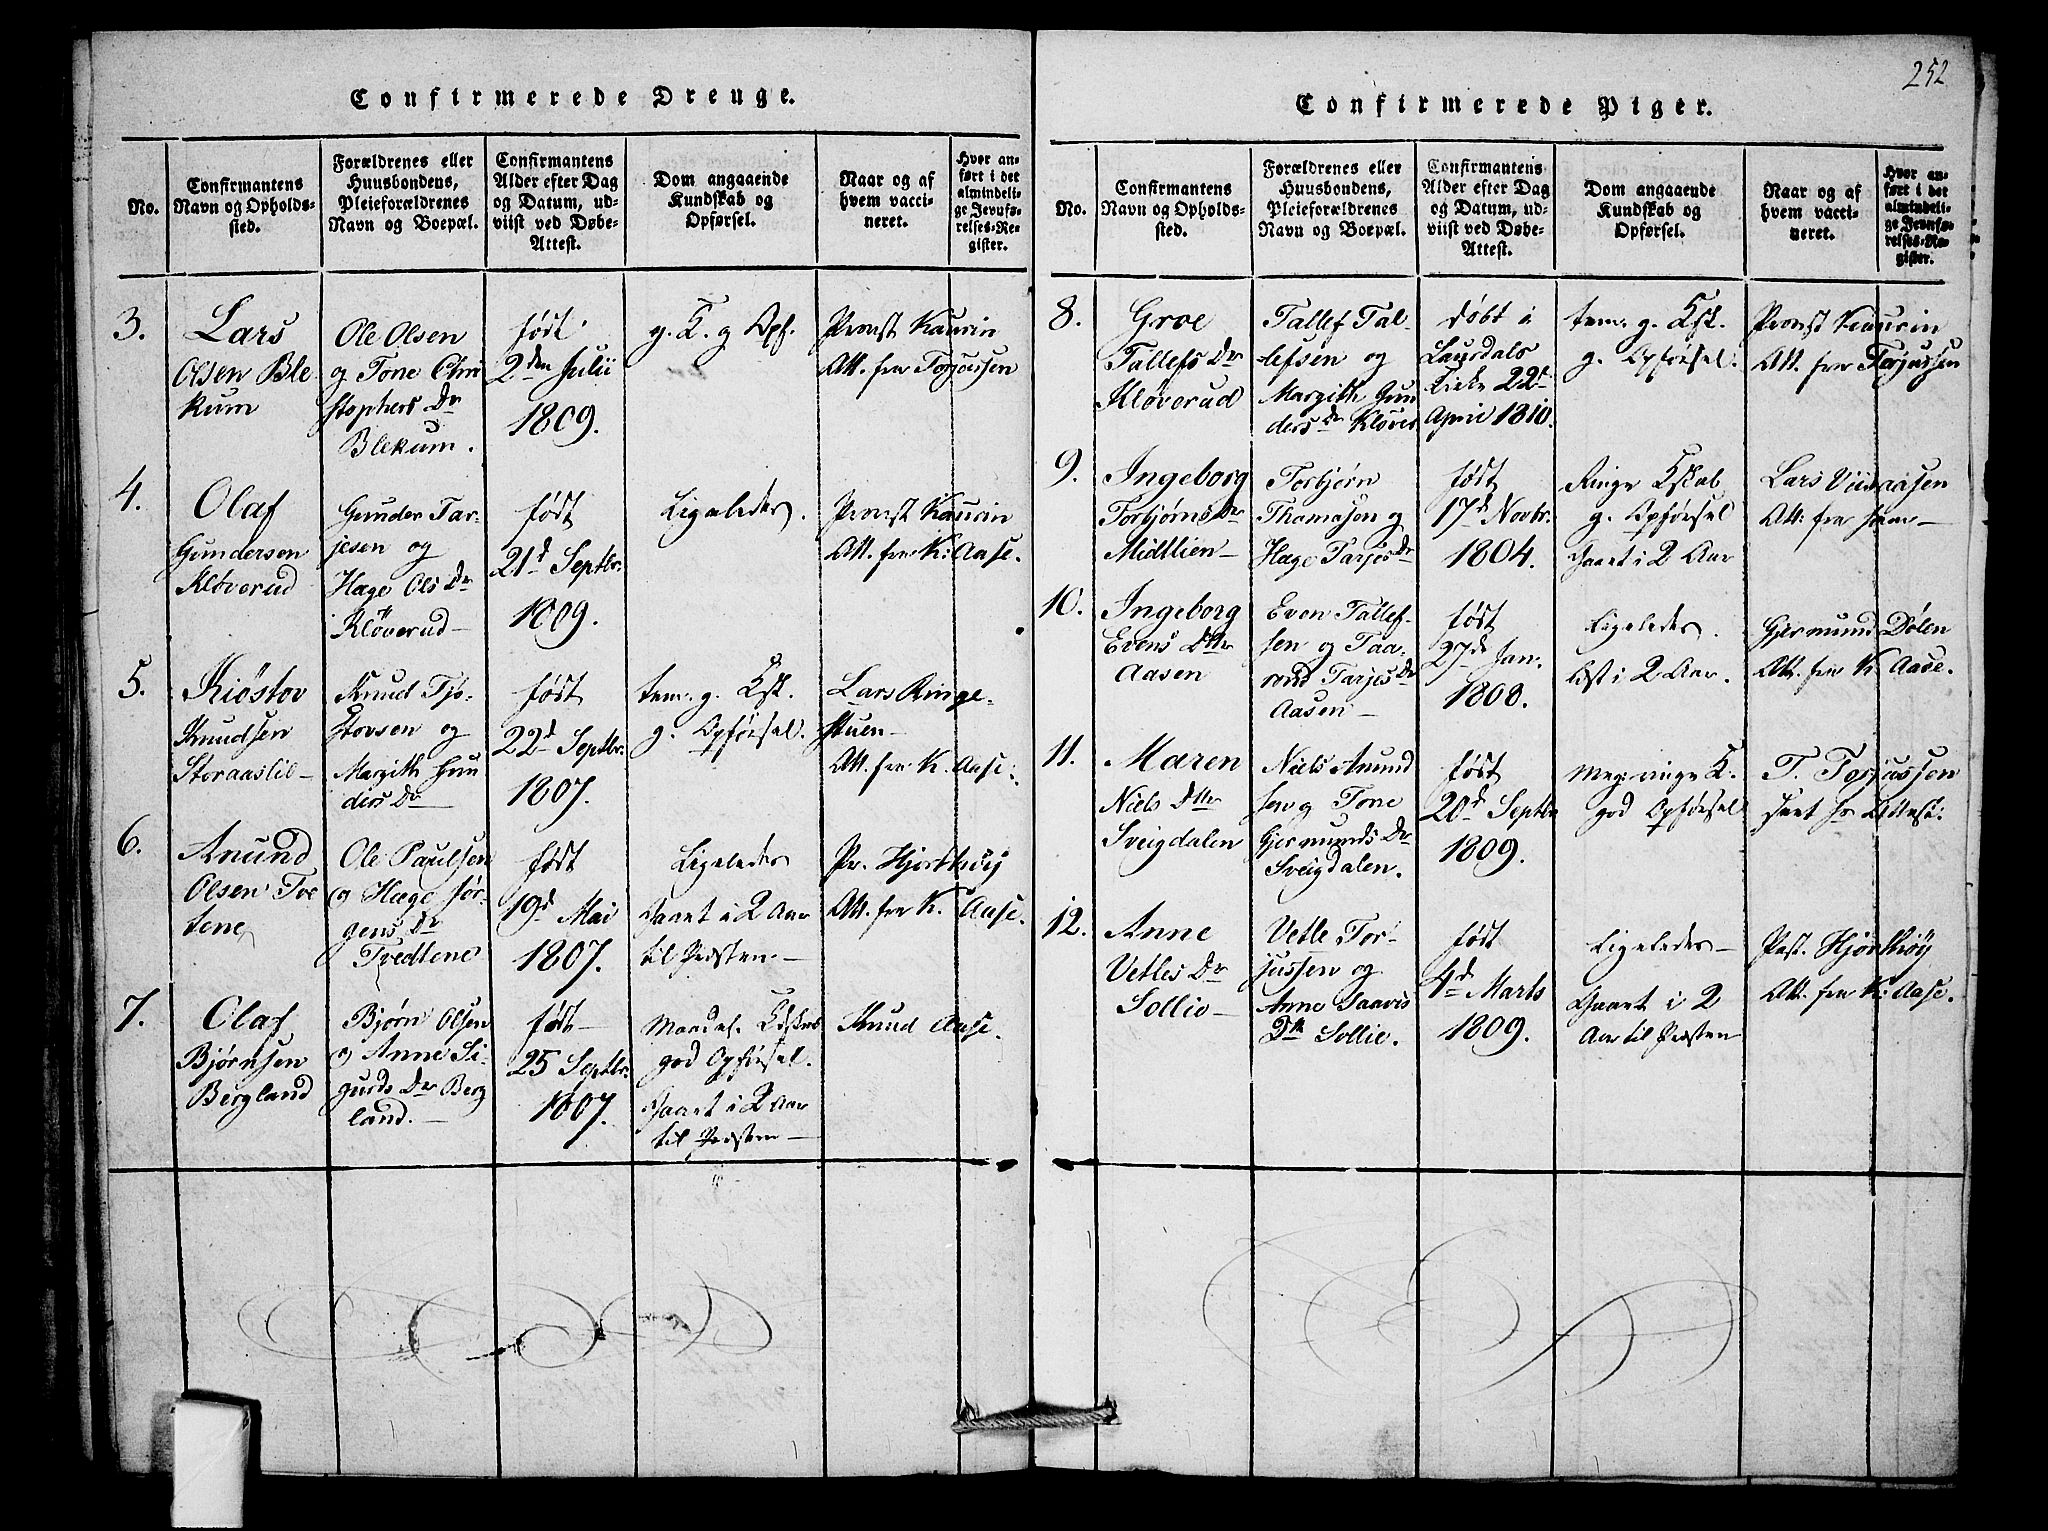 252
Confirmerede Drenge.
No.
Confirmantens
Navn og Opholds-
sted.
Forældrenes eller
Huusbondens,
Pleieforældrenes
Navn og Boepæl.
Confirmantens
Alder efter Dag
og Datum, ud-
viist ved Døbe-
Attest.
Dom angaaende
Kundskab og
Opførsel.
Naar og af
hvem vacci-
neret.
Hvor an-
ført i det
almindeli-
ge Jevnfø-
relses-Re-
gister.
3.
Lars
Olsen Ble
kum
Ole Olsen
og Tone Chri
stophers Dr
Blekum.
født
2den Julii
1809.
g. K. g Opf.
Provst Kaurin
Att. fra Torjussen
4.
Olaf
Gundersen
Kløverud
Gunder Tar-
jesen og
Hæge Ols Dr
Kløverud
født
21d Septbr.
1809.
Ligeledes.
Provst Kaurin
Att. fra K: Aase.
5.
Kiøstov
Knudsen
Storaaslie
Knud Tjo-
stovsen og
Margith Gun
ders Dr
født
22d Septbr.
1807.
tem. g. Ksk.
g. Opførsel.
Lars Ringe-
stuen
Att. fra K. Aase:
6.
Anund
Olsen Tve
tene
Ole Paulsen
og Hæge Jør-
gens Dr
Tvedtene
født
19d Mai
1807.
Ligeledes
Gaaet i 2 Aar
til Præsten.
Pr. Hjorthøy
Att. fra K. Aase.
7.
Olaf
Bjørnsen
Bergland
Bjørn Olsen
og Anne Si-
gurds Dr Berg
land.
født
25 Septbr.
1807.
god Opførsel.
Gaaet i 2 Aar
til Præsten
Knud Aase.
Confirmerede Piger.
No.
Confirmantens
Navn og Opholds-
sted.
Forældrenes eller
Huusbondens,
Pleieforældrenes
Navn og Boepæl.
Confirmantens
Alder efter Dag
og Datum, ud-
viist ved Døbe-
Attest.
Dom angaaende
Kundskab og
Opførsel.
Naar og af
hvem vacci-
neret.
Hvor an-
ført i det
almindeli-
ge Jevnfø-
relses-Re-
gister.
8.
Groe
Tallefs Dr
Kløverud
Tallef Tal-
lefsen og
Margith Gun
ders Dr Kløver
døbt i
Laurdals
Kirke 22d
April 1810.
tem. g. Ksk.
g. Opførsel.
Provst Kaurin
Att. fra Torjussen
9.
Ingeborg
Torbjørns Dr
Midtlien
Torbjørn
Thomasen og
Hæge Tarjes Dr
født
17d Novbr.
1804.
Ringe Kskab
g. Opførsel
Gaaet i 2 Aar
Lars
Att: fra ham
10.
Ingeborg
Evens Dttr
Aasen
Even Tallef-
sen og Taa-
rand Tarjes Dr
Aasen
født
27d Jan.
1808.
Ligeledes.
læst i 2 Aar.
Gjermund Dølen
Att. fra K: Aase.
11.
Maren
Niels Dttr
Sveigdalen
Niels Anund
sen og Tone
Gjermunds Dr
Sveigdalen.
født
20d Septbr
1809.
Meg: ringe K.
god Opførsel
T. Torjussen
12.
Anne
Vetles Dr
Sollie
Vetle Tor-
jussen og
Anne Saavis
Dtr Sollie.
født
4d Marts
1809.
Ligeledes
Gaaet i 2
Aar til Præsten
Past. Hjorthøy
Att. fra K: Aase.